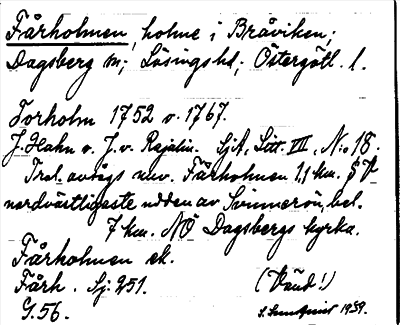 Fårholmen, holme i Bråviken;
Dagsberg sn; Lösings hd; Östergötl. l.
Torholm 1752 o. 1767.
J. Hahn o. J. v. Rajalin. SjA, Litt. VII, N:o 18.
Trol. avses nuv. Fårholmen 1,1 km.
nordvästligaste udden av Svinnerön, bel.
7 km. NÖ Dagsbergs kyrka.
Fårholmen ek.
Fårh. Sj: 251. (Vänd!)
G. 56. S. Sundqvist 1939.